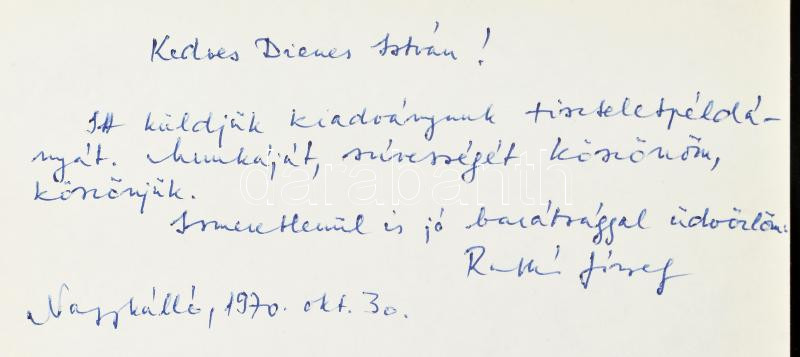 Kedves Dienes István!
Itt küldjük kiadványunk tiszteletpéldá-
nyát. Munkáját, szívességét köszönöm,
köszönjük.
Ismeretlenül is jó barátsággal üdvözlöm:
Ratkó József
Nagykálló, 1970. okt. 30.
darabanth